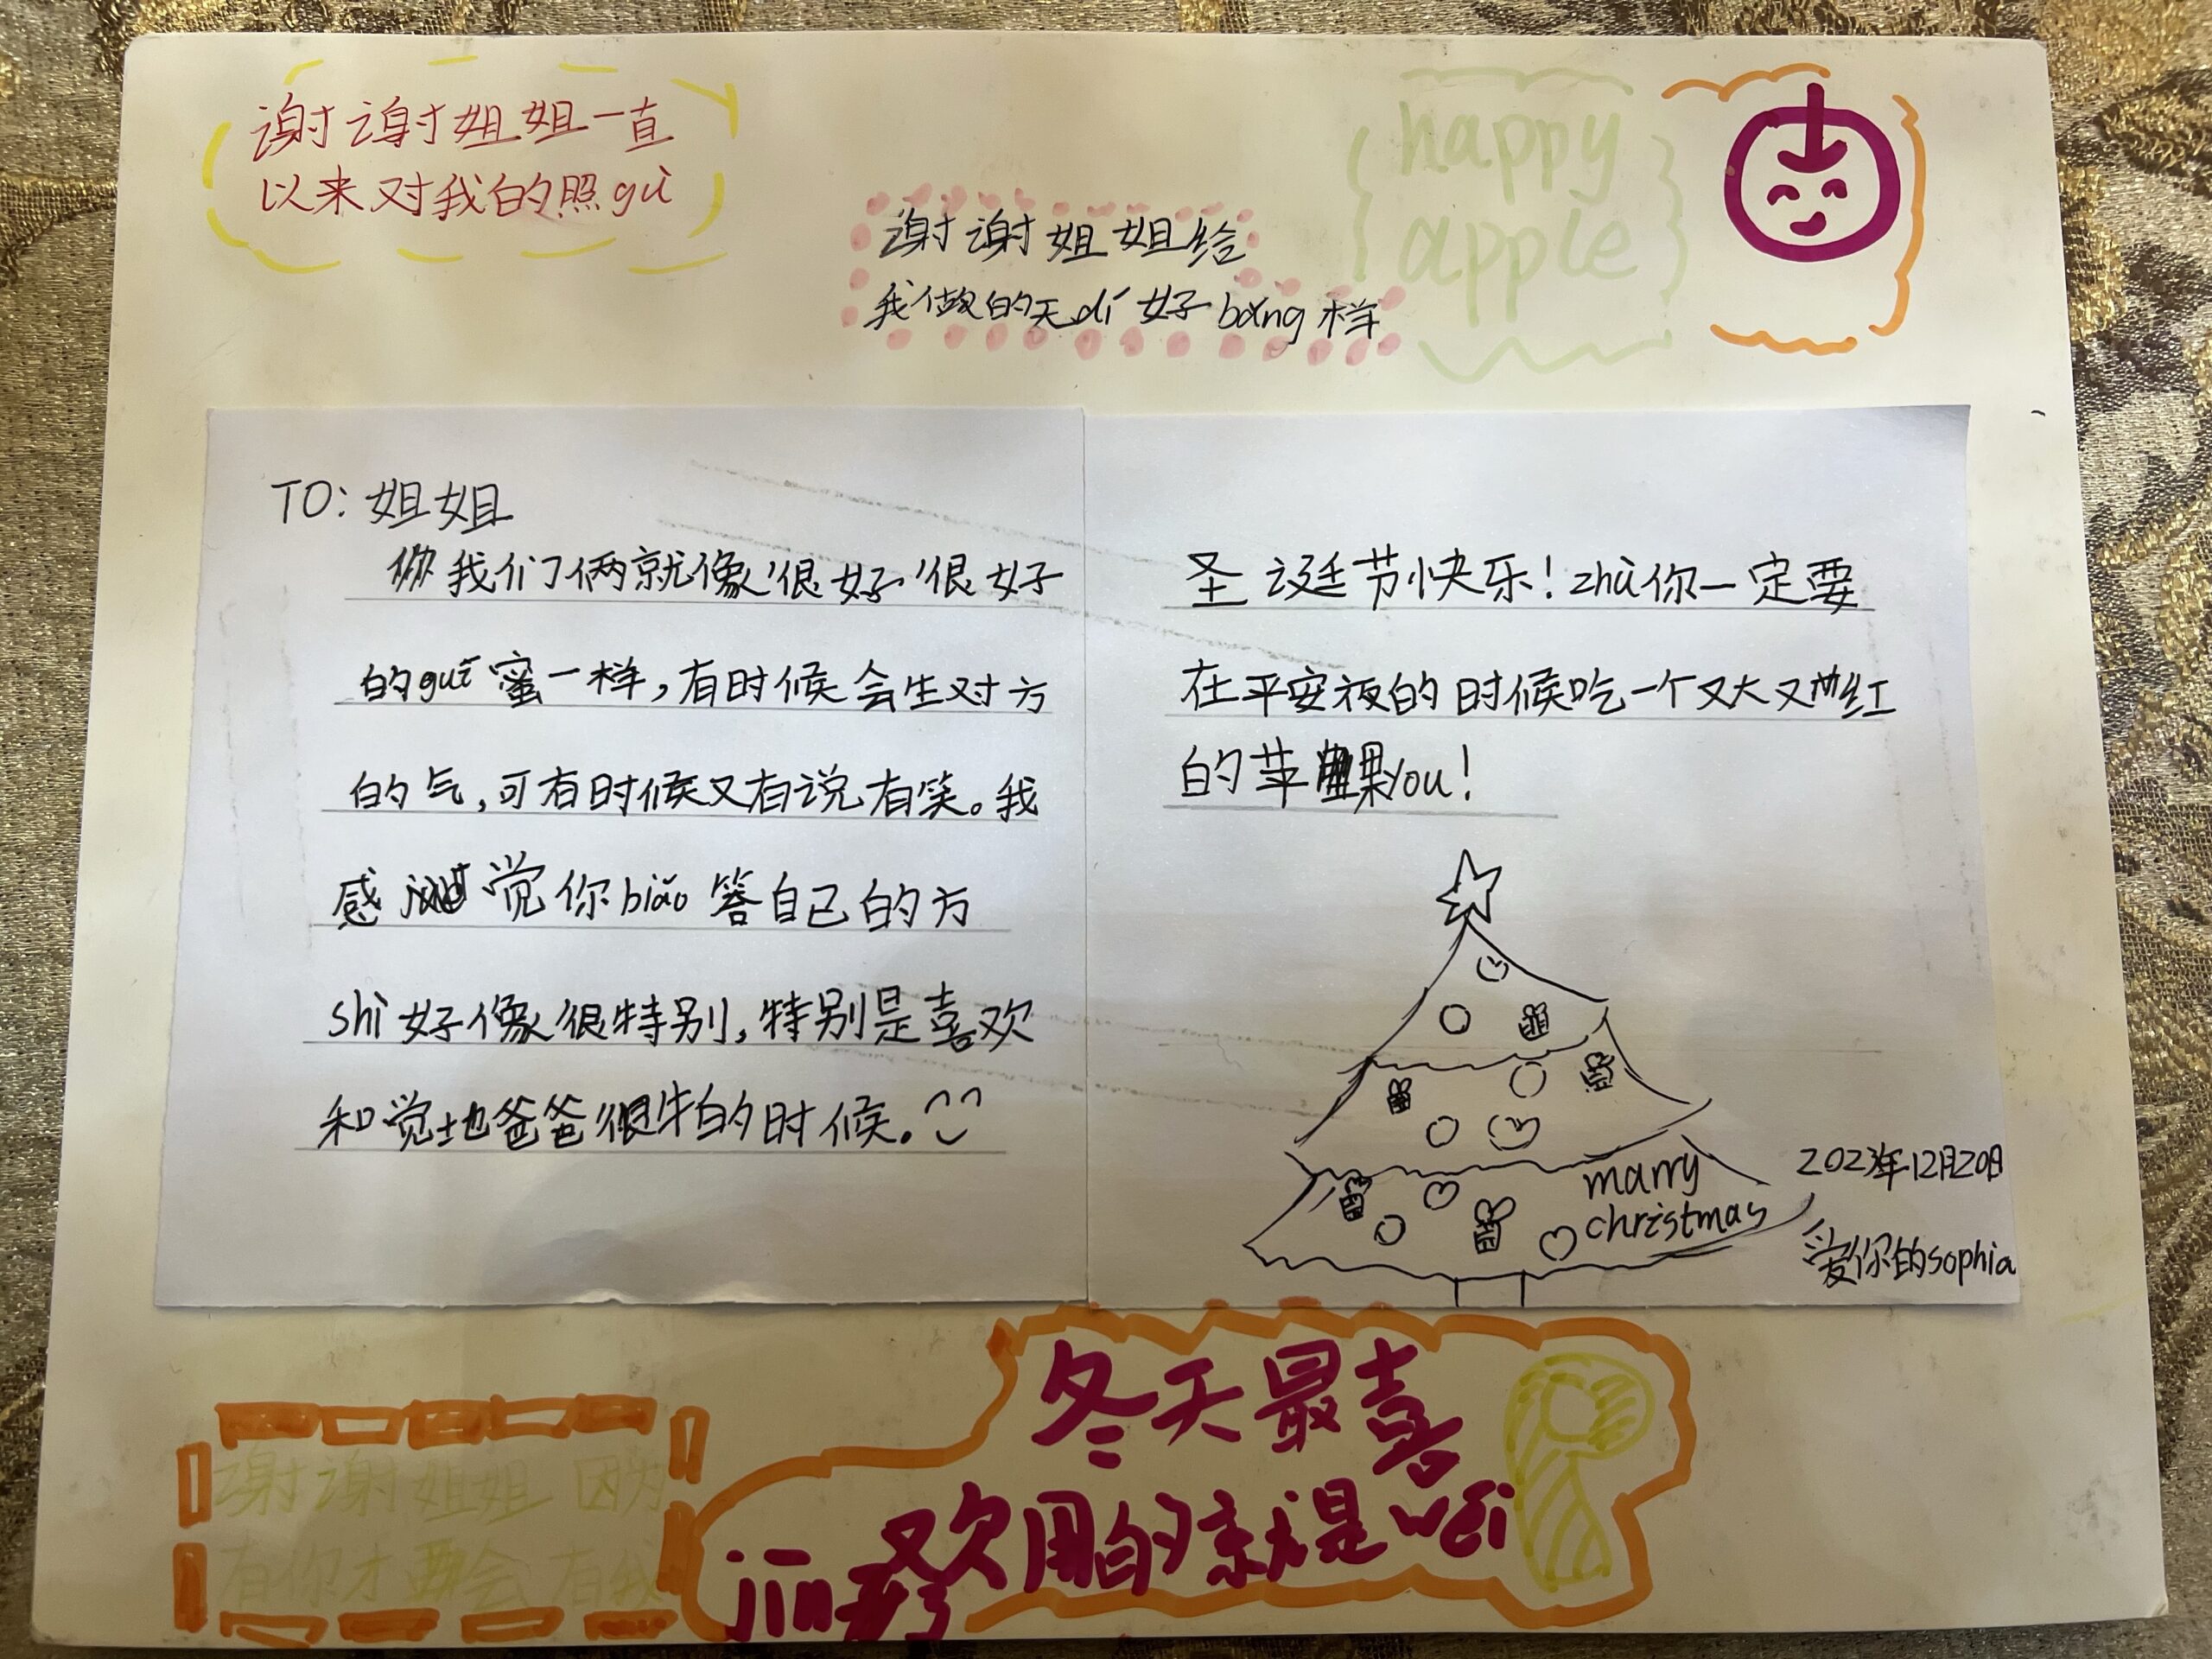 谢谢姐姐一直
以来对我的照gù
谢谢姐姐给
我做的天dí好bǎng样
happy
apple
TO: 姐姐
我们俩就像'很好'很好
的guī蜜一样,有时候会生对方
的气,可有时候又有说有笑。我
感觉你biǎo答自己的方
shì好像很特别,特别是喜欢
和觉地爸爸很牛的时候。
圣诞节快乐!zhù你一定要
在平安夜的时候吃一个又大又红
的苹果you!
marry
christmas
2023年12月20日
爱你的sophia
谢谢姐姐因为
有你才会有我
冬天最喜
欢用的就是wéi
jīn